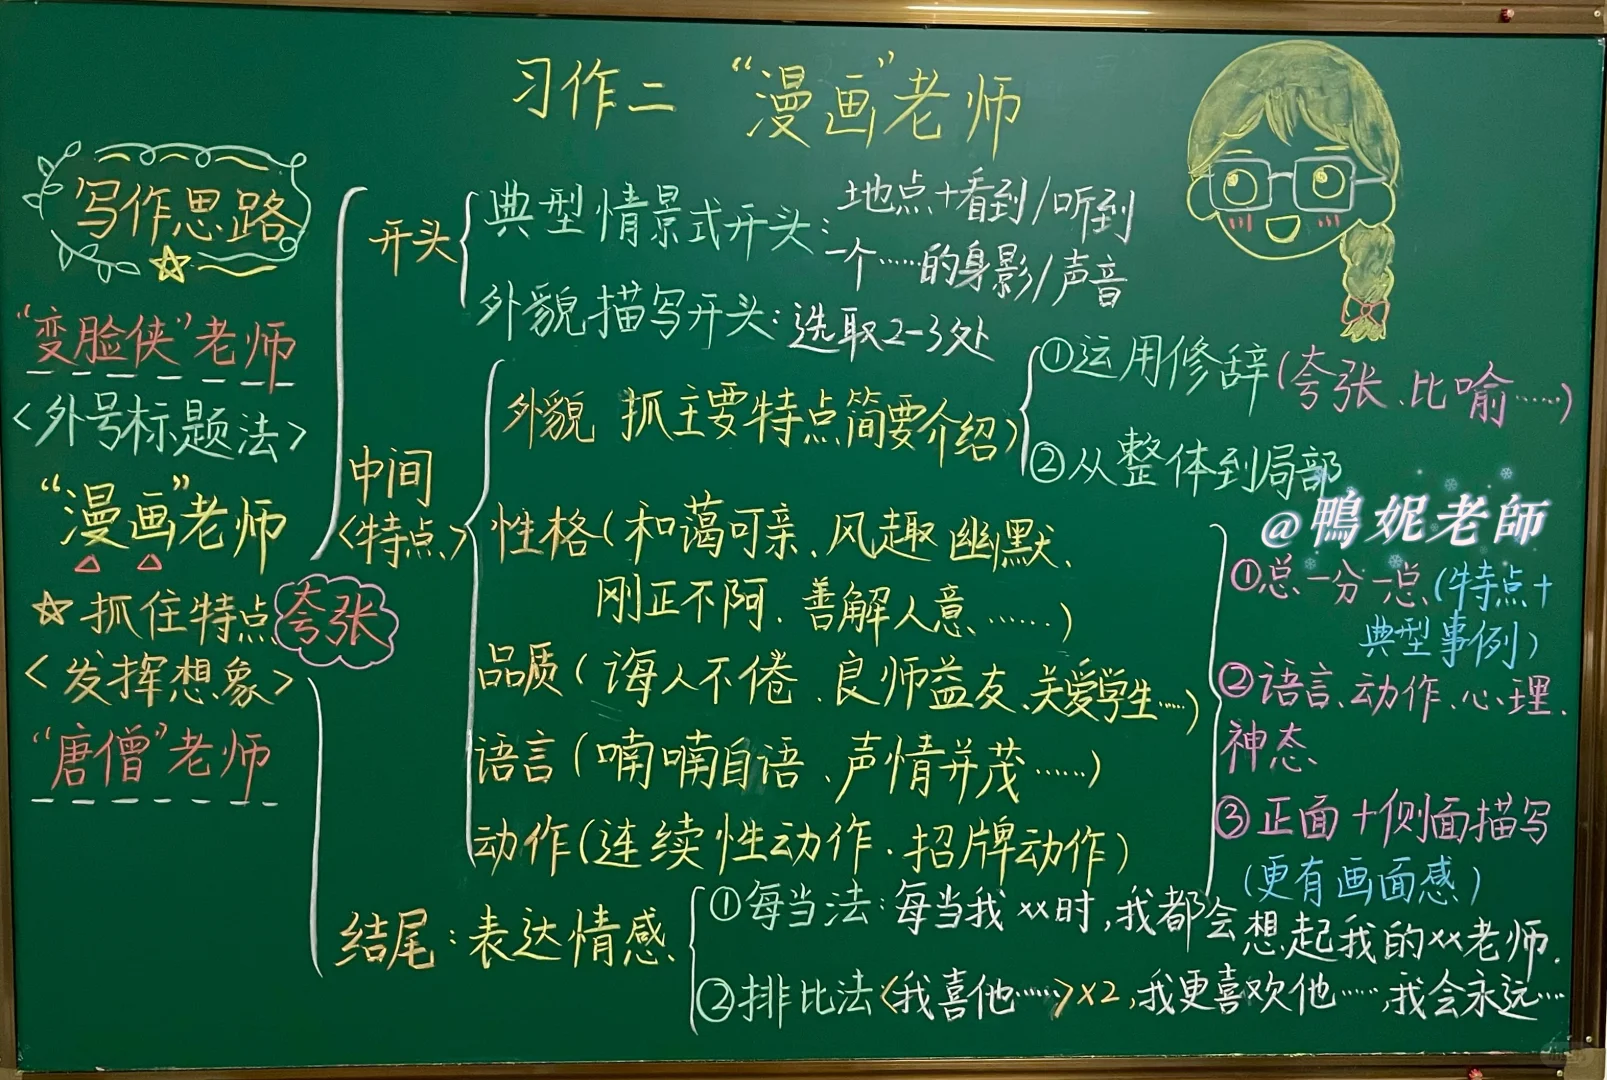 习作二 “漫画”老师
写作思路
“变脸侠”老师
<外号标题法>
“漫画”老师
抓住特点 夸张
<发挥想象>
“唐僧”老师
开头
典型情景式开头：地点+看到/听到
一个……的身影/声音
外貌描写开头：选取2-3处
中间
<特点>
外貌 抓主要特点简要介绍
①运用修辞(夸张、比喻……)
②从整体到局部
性格(和蔼可亲、风趣幽默、
刚正不阿、善解人意……)
品质(诲人不倦、良师益友、关爱学生……)
语言(喃喃自语、声情并茂……)
动作(连续性动作、招牌动作)
@鴨妮老師
①总一分一总(特点+
典型事例)
②语言、动作、心理、
神态
③正面+侧面描写
(更有画面感)
结尾：表达情感
①每当法：每当我xx时，我都会想起我的xx老师.
②排比法<我喜他……>x2，我更喜欢他……，我会永远…